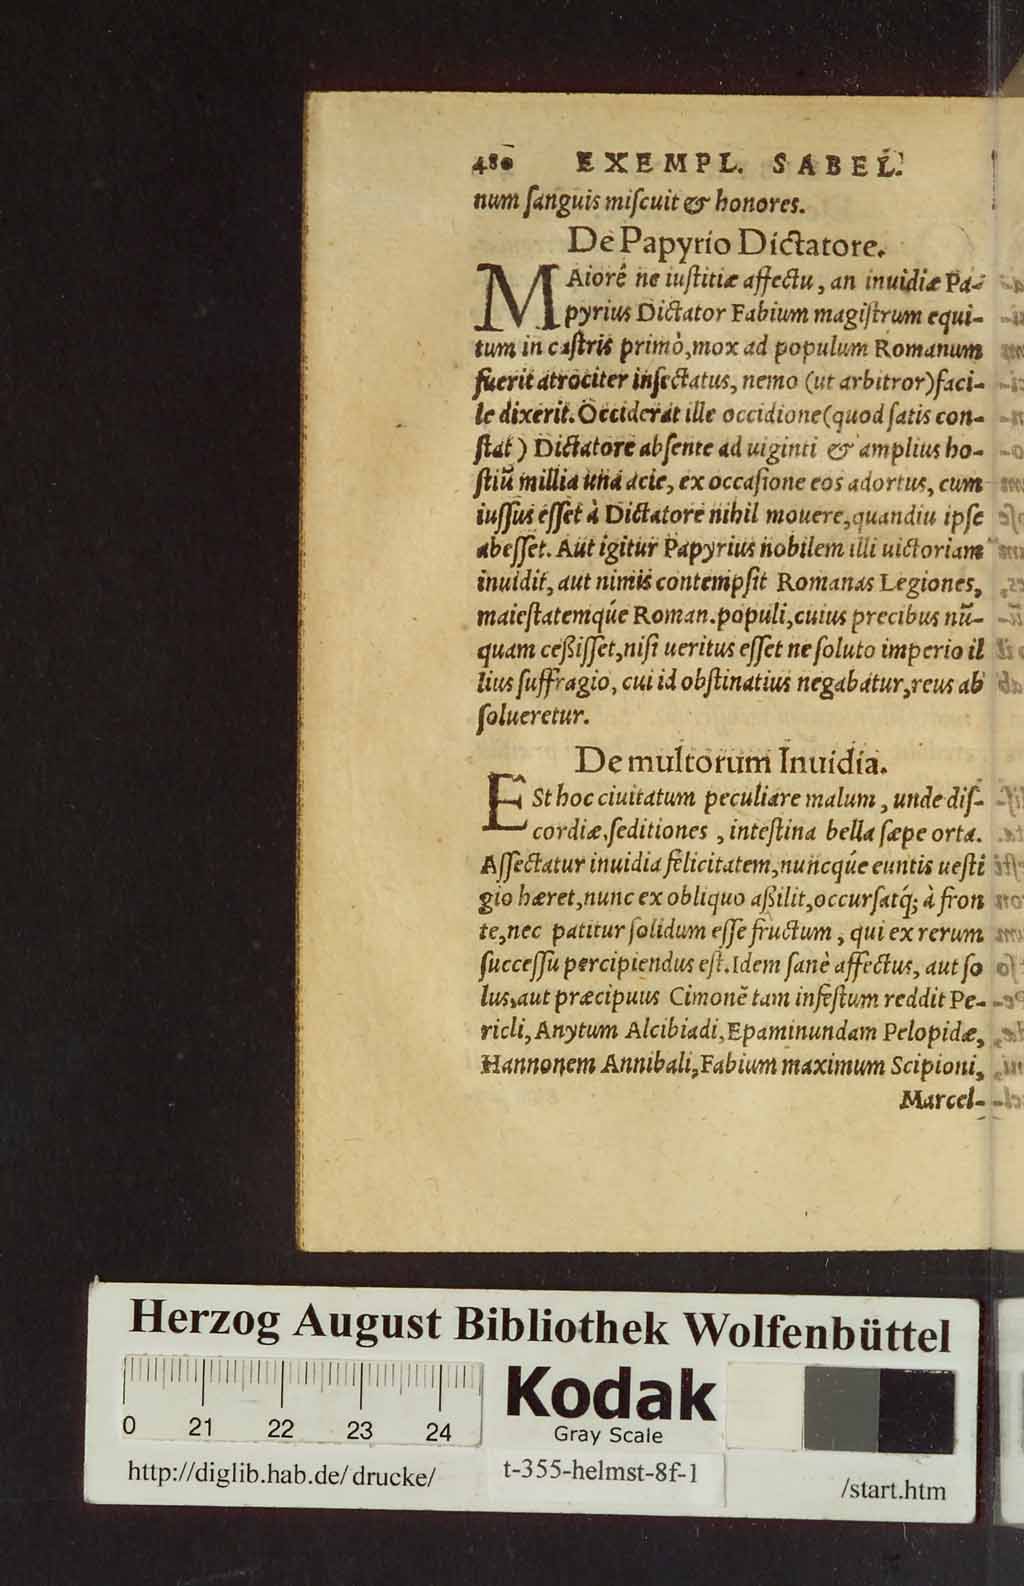 480 EXEMPL. SABEL.
num ſanguis miſcuit & honores.
De Papyrio Dictatore.
MAioré ne iuſtitiæ affectu, an inuidiæ Pa-
pyrius Dictator Fabium magiſtrum equi-
tum in caſtris primò, mox ad populum Romanum
fuerit atrociter inſectatus, nemo (ut arbitror) faci-
le dixerit. Occiderat ille occidione (quod ſatis con-
ſtat) Dictatore abſente ad uiginti & amplius ho-
ſtiũ millia una acie, ex occaſione eos adortus, cum
iuſſus eſſet à Dictatore nihil mouere, quandiu ipſe
abeſſet. Aut igitur Papyrius nobilem illi uictoriam
inuidit, aut nimis contempſit Romanas Legiones,
maieſtatemq́ue Roman. populi, cuius precibus nũ-
quam ceßiſſet, niſi ueritus eſſet ne ſoluto imperio il
lius ſuffragio, cui id obſtinatius negabatur, reus ab
ſolueretur.
De multorum Inuidia.
ESt hoc ciuitatum peculiare malum, unde diſ-
cordiæ, ſeditiones, inteſtina bella ſæpe orta.
Aſſectatur inuidia felicitatem, nuncq́ue euntis ueſti
gio hæret, nunc ex obliquo aßilit, occurſatq́; à fron
te, nec patitur ſolidum eſſe fructum, qui ex rerum
ſucceſſu percipiendus eſt. Idem ſanè affectus, aut ſo
lus, aut præcipuus Cimonẽ tam infeſtum reddit Pe-
ricli, Anytum Alcibiadi, Epaminundam Pelopidæ,
Hannonem Annibali, Fabium maximum Scipioni,
Marcel-
Herzog August Bibliothek Wolfenbüttel
0 21 22 23 24
Kodak
Gray Scale
http://diglib.hab.de/drucke/ t-355-helmst-8f-1 /start.htm